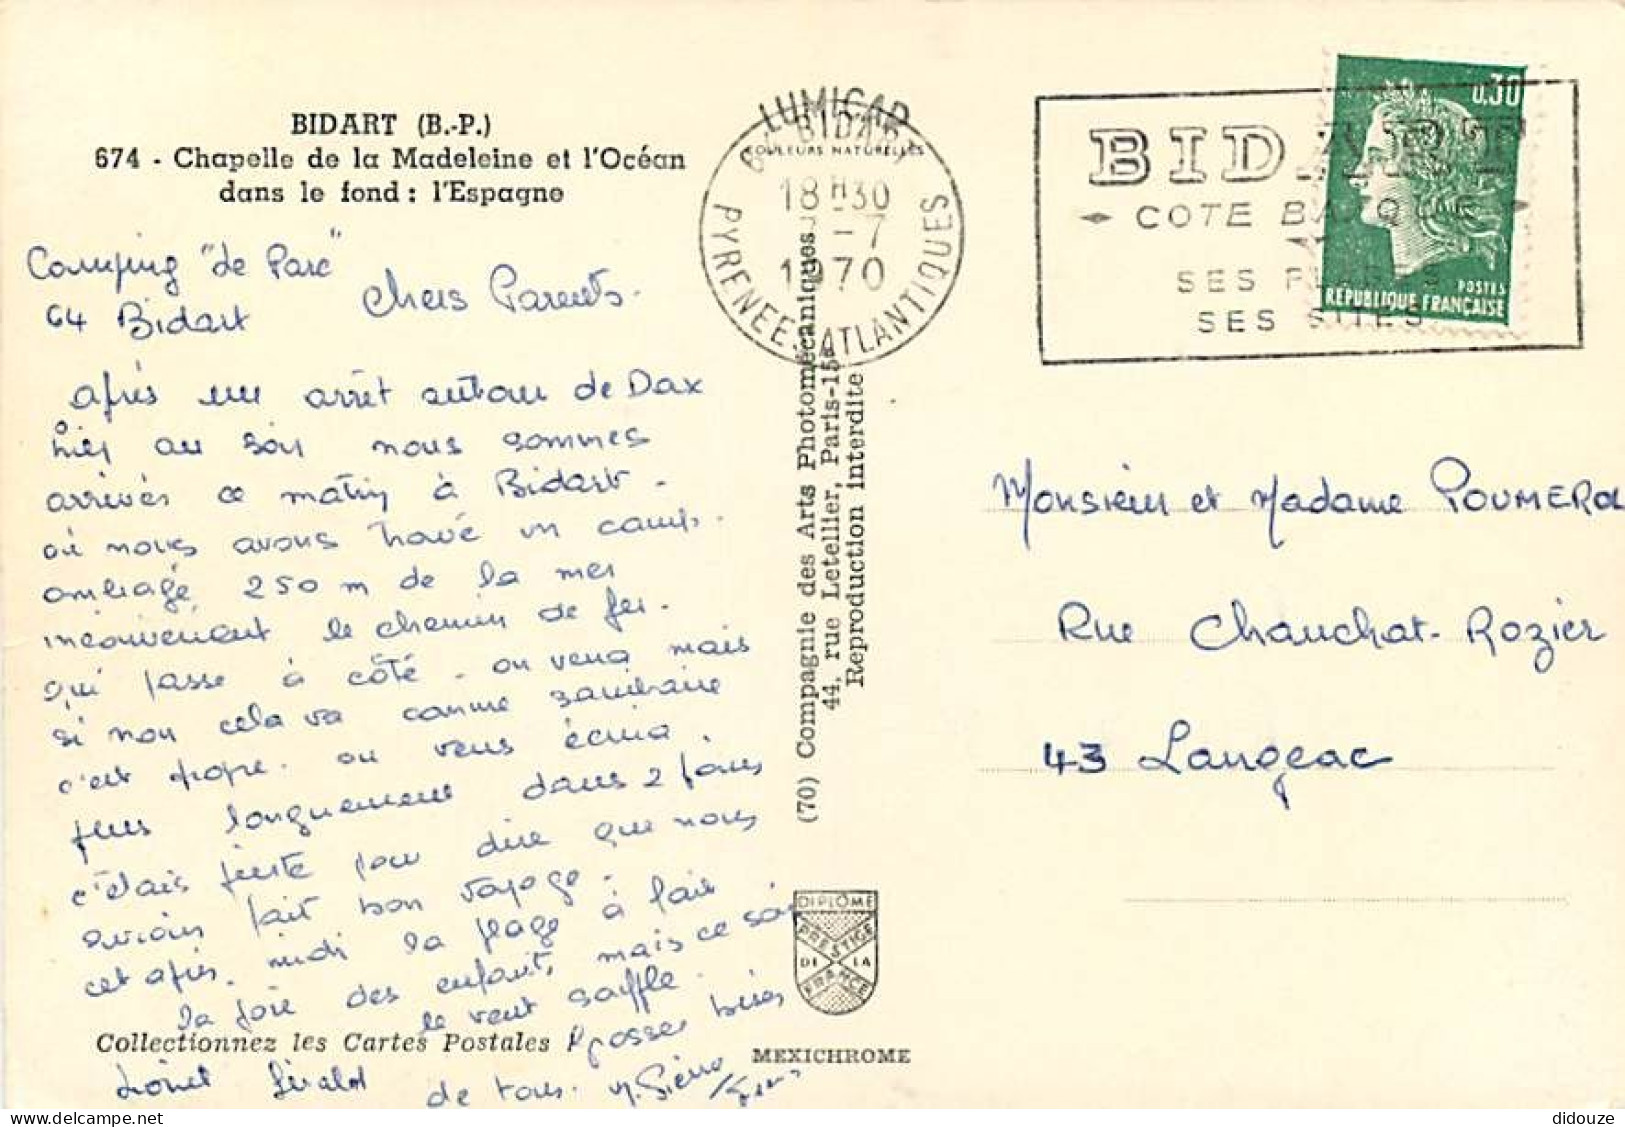 BIDART (B.-P.)
674 - Chapelle de la Madeleine et l'Océan
dans le fond : l'Espagne
Camping "de Parc"
64 Bidart
Chers Parents.
après un arrêt autour de Dax
hier au soir nous sommes
arrivés ce matin à Bidart.
où nous avons trouvé un camp.
ombragé 250 m de la mer
inconvénient le chemin de fer.
qui passe à côté. on verra mais
si non cela va comme sanitaire
c'est propre. on vous écrira.
plus longuement dans 2 jours
c'étais juste pour dire que nous
avions fait bon voyage.
cet après. midi la plage à fait
la joie des enfants, mais ce soir
le vent souffle.
grosses bises
de tous.
Lionel Gérald
M. Pierre
LUMICAP
COULEURS NATURELLES
BIDART
18H30
-7
1970
PYRENEES ATLANTIQUES
BIDART
COTE BASQUE
SES PLAGES
SES SITES
0,30
POSTES
REPUBLIQUE FRANÇAISE
(70) Compagnie des Arts Photomécaniques
44, rue Letellier, Paris-15e
Reproduction interdite
Monsieur et Madame POUMEROL
Rue Chauchat-Rozier
43 Langeac
DIPLÔME
PRESTIGE
DE LA
FRANCE
Collectionnez les Cartes Postales
MEXICHROME
didouze